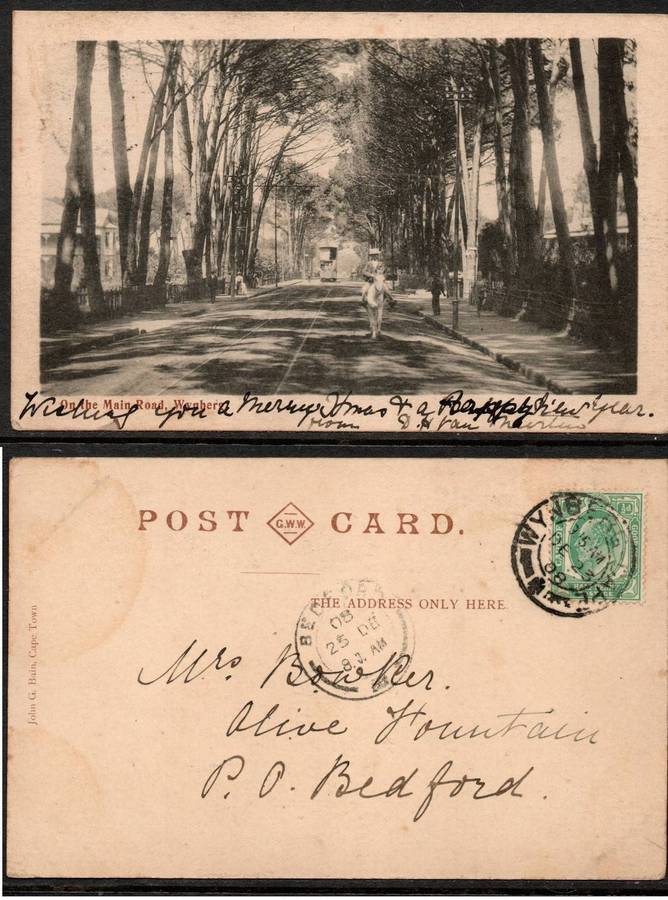 On the Main Road, Wynberg
Wishing you a Merry Xmas & a Happy New Year.
from D. H. van
POST G.W.W. CARD.
WYNBERG
DE 23
08
THE ADDRESS ONLY HERE
BEDFORD
08
25 DE
8. AM
John G. Bain, Cape Town
Mrs Bowker.
Olive Fountain
P.O. Bedford.